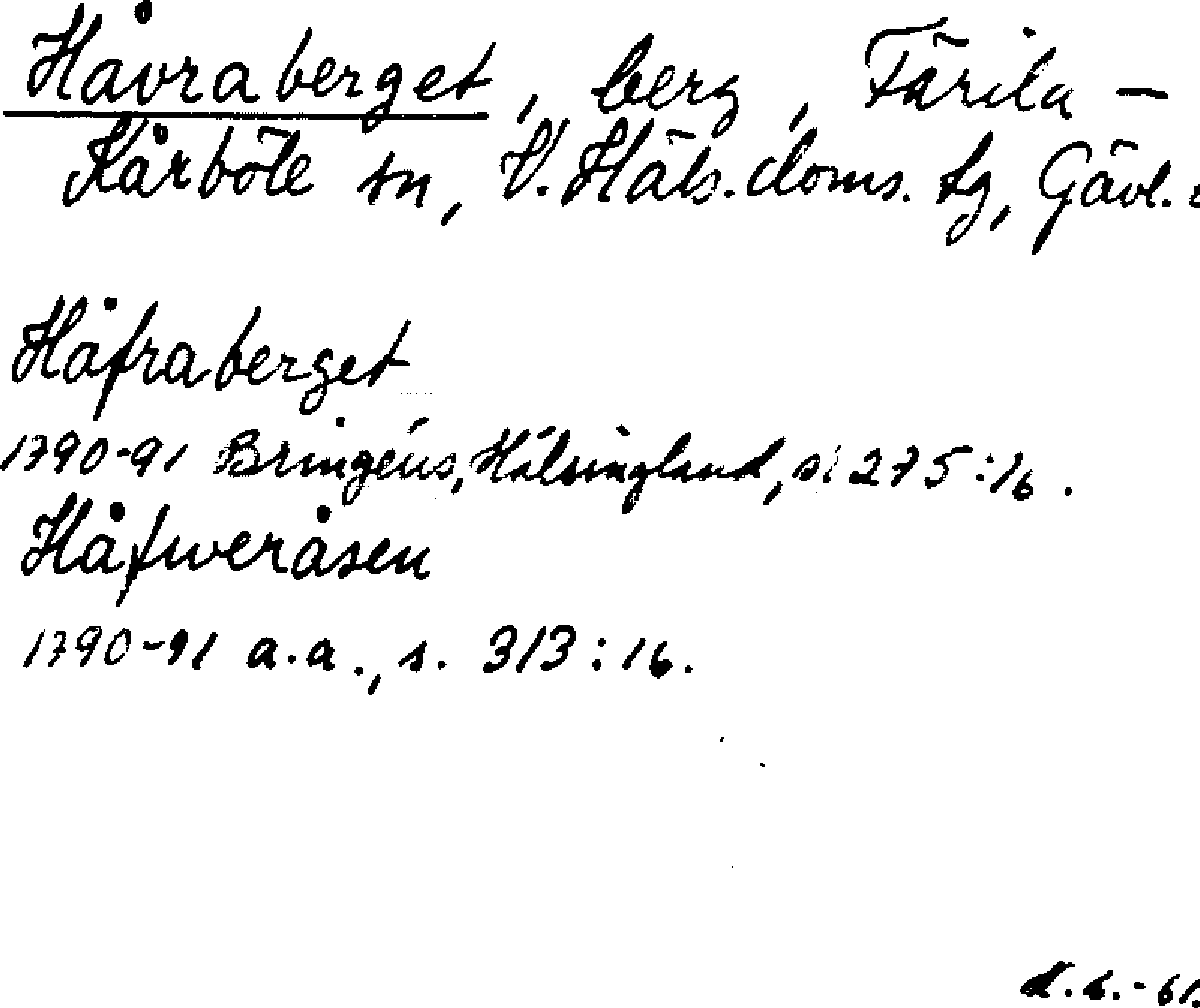 Håvraberget, berg, Färila –
Kårböle sn, V. Häls. doms. tg, Gävl.
Håfraberget
1790-91 Bringéus, Hälsingland, s. 275:16.
Håfweråsen
1790-91 a.a., s. 313:16.
-61.